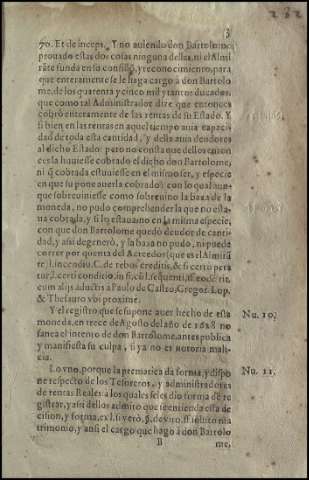 3
232
70. Et deinceps. Y no auiendo don Bartolome
prouado estas dos cosas ninguna dellas, ni el Almi
rãte funda en su consissõ, y reconocimiento, para
que enteramente se le haga cargo a don Bartolo
me, de los quarenta y cinco mil y tantos ducados,
que como tal Administrador dize que entonces
cobrò enteramente de las rentas de su Estado. Y
si bien en las rentas en aquel tiempo auia capaci-
dad de toda esta cantidad, y della auia deudores
al dicho Estado: pero no consta que dellos enton
ces la huuiesse cobrado el dicho don Bartolome,
ni q̃ cobrada estuuiesse en el mismo ser, y especie
en que supone auerla cobrado: con lo qual aun-
que sobreuiniesse como sobreuino la baxa de la
moneda, no pudo comprehender la que no esta-
ua cobrada, y si lo estaua no en la misma especie,
con que don Bartolome quedò deudor de canti-
dad, y assi degenerò, y la baxa no pudo, ni puede
correr por quenta del Acreedor (que es el Almirã
te) l. incendiũ, C. de rebus creditis, & si certũ peta
tur, l. certi conditio, in fin. cũ l. sequenti, ff. eodẽ tit.
cum alijs adductis a Paulo de Castro, Gregor. Lop.
& Thesauro vbi proximè.
Y el registro que se supone auer hecho de esta
moneda, en trece de Agosto del año de 1628 no
sanea el intento de don Bartolome, antes publica
y manifiesta su culpa, si ya no es notoria mali-
cia.
Nu. 10.
Lo vno, porque la prematica da forma, y dispo
ne respecto de los Tesoreros, y administradores
de rentas Reales a los quales se les dio forma de re
gistrar, y assi dellos a dmito que se entienda esta de
cision, y forma, ex l. si verò, §. de viro, ff. soluto ma
trimonio, y ansi el cargo que hago à don Bartolo
Nu. 11.
B
me,